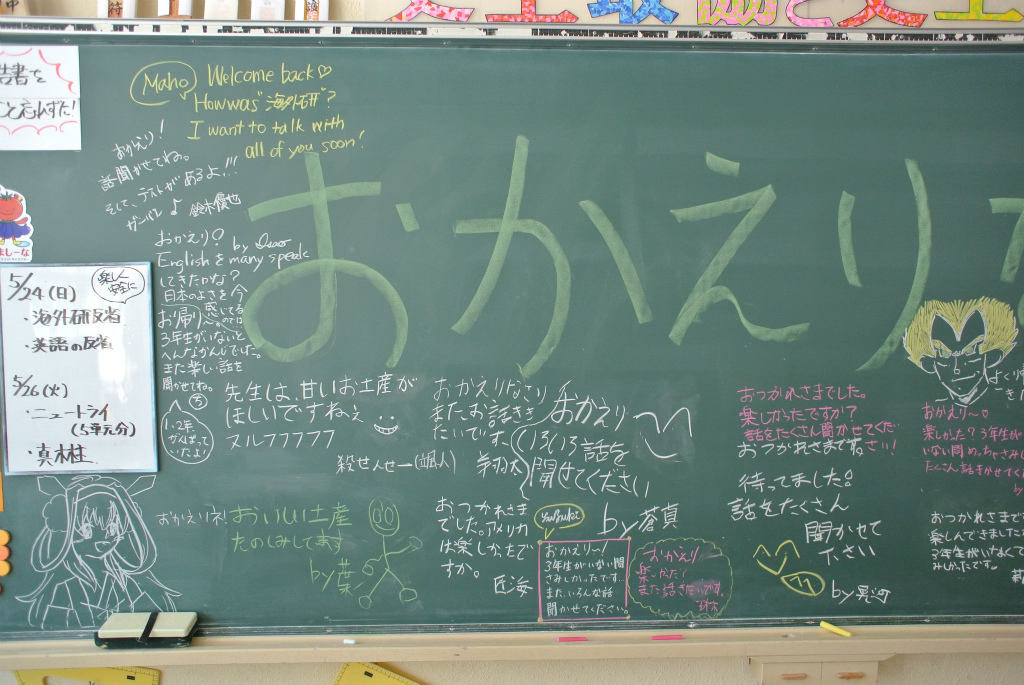 Maho
Welcome back♡
How was "海外研"?
I want to talk with
all of you soon!
おかえり!
話聞かせてね。
そして、テストがあるよ!!!
ガンバレ♪ 鈴木優也
おかえり
おかえり?
English を many speak
してきたかな?
日本のよさを今
感じてる
お帰り
3年生がいないと
へんなかんじでした。
また楽しい話を
聞かせてね。
1、2年
がんばって
いたよ!
5/24(日)
楽しく
安全に
・海外研反省
・英語の反省
5/26(火)
・ニュートライ
(5単元分)
・真木柱
先生は、甘いお土産が
ほしいですねぇ
ヌルフフフフフ
殺せんせー(颯人)
おかえりなさい
またお話きき
たいです。
翔太
おかえり
いろいろ話を
聞せてください
by蒼真
おつかれさまでした。
楽しかったですか?
話をたくさん聞かせてくださいさい!
おつかれさまです。
待ってました!
話をたくさん
聞かせて
下さい
おかえり〜
楽しかった?3年生が
いない間めっちゃさみし
たくさん話きかせてく
おかえりネ!
おいしい土産
たのしみしてます
by葉
おつかれさま
でした。アメリカ
は楽しかったで
すか。
匠海
おかえり〜!
3年生がいない間
さみしかったです。
また、いろんな話
聞かせてください。
おかえり
楽しかった?
また話きたいです。
おつかれさまで
楽しんできました
3年生がいなくて
みしかったです。